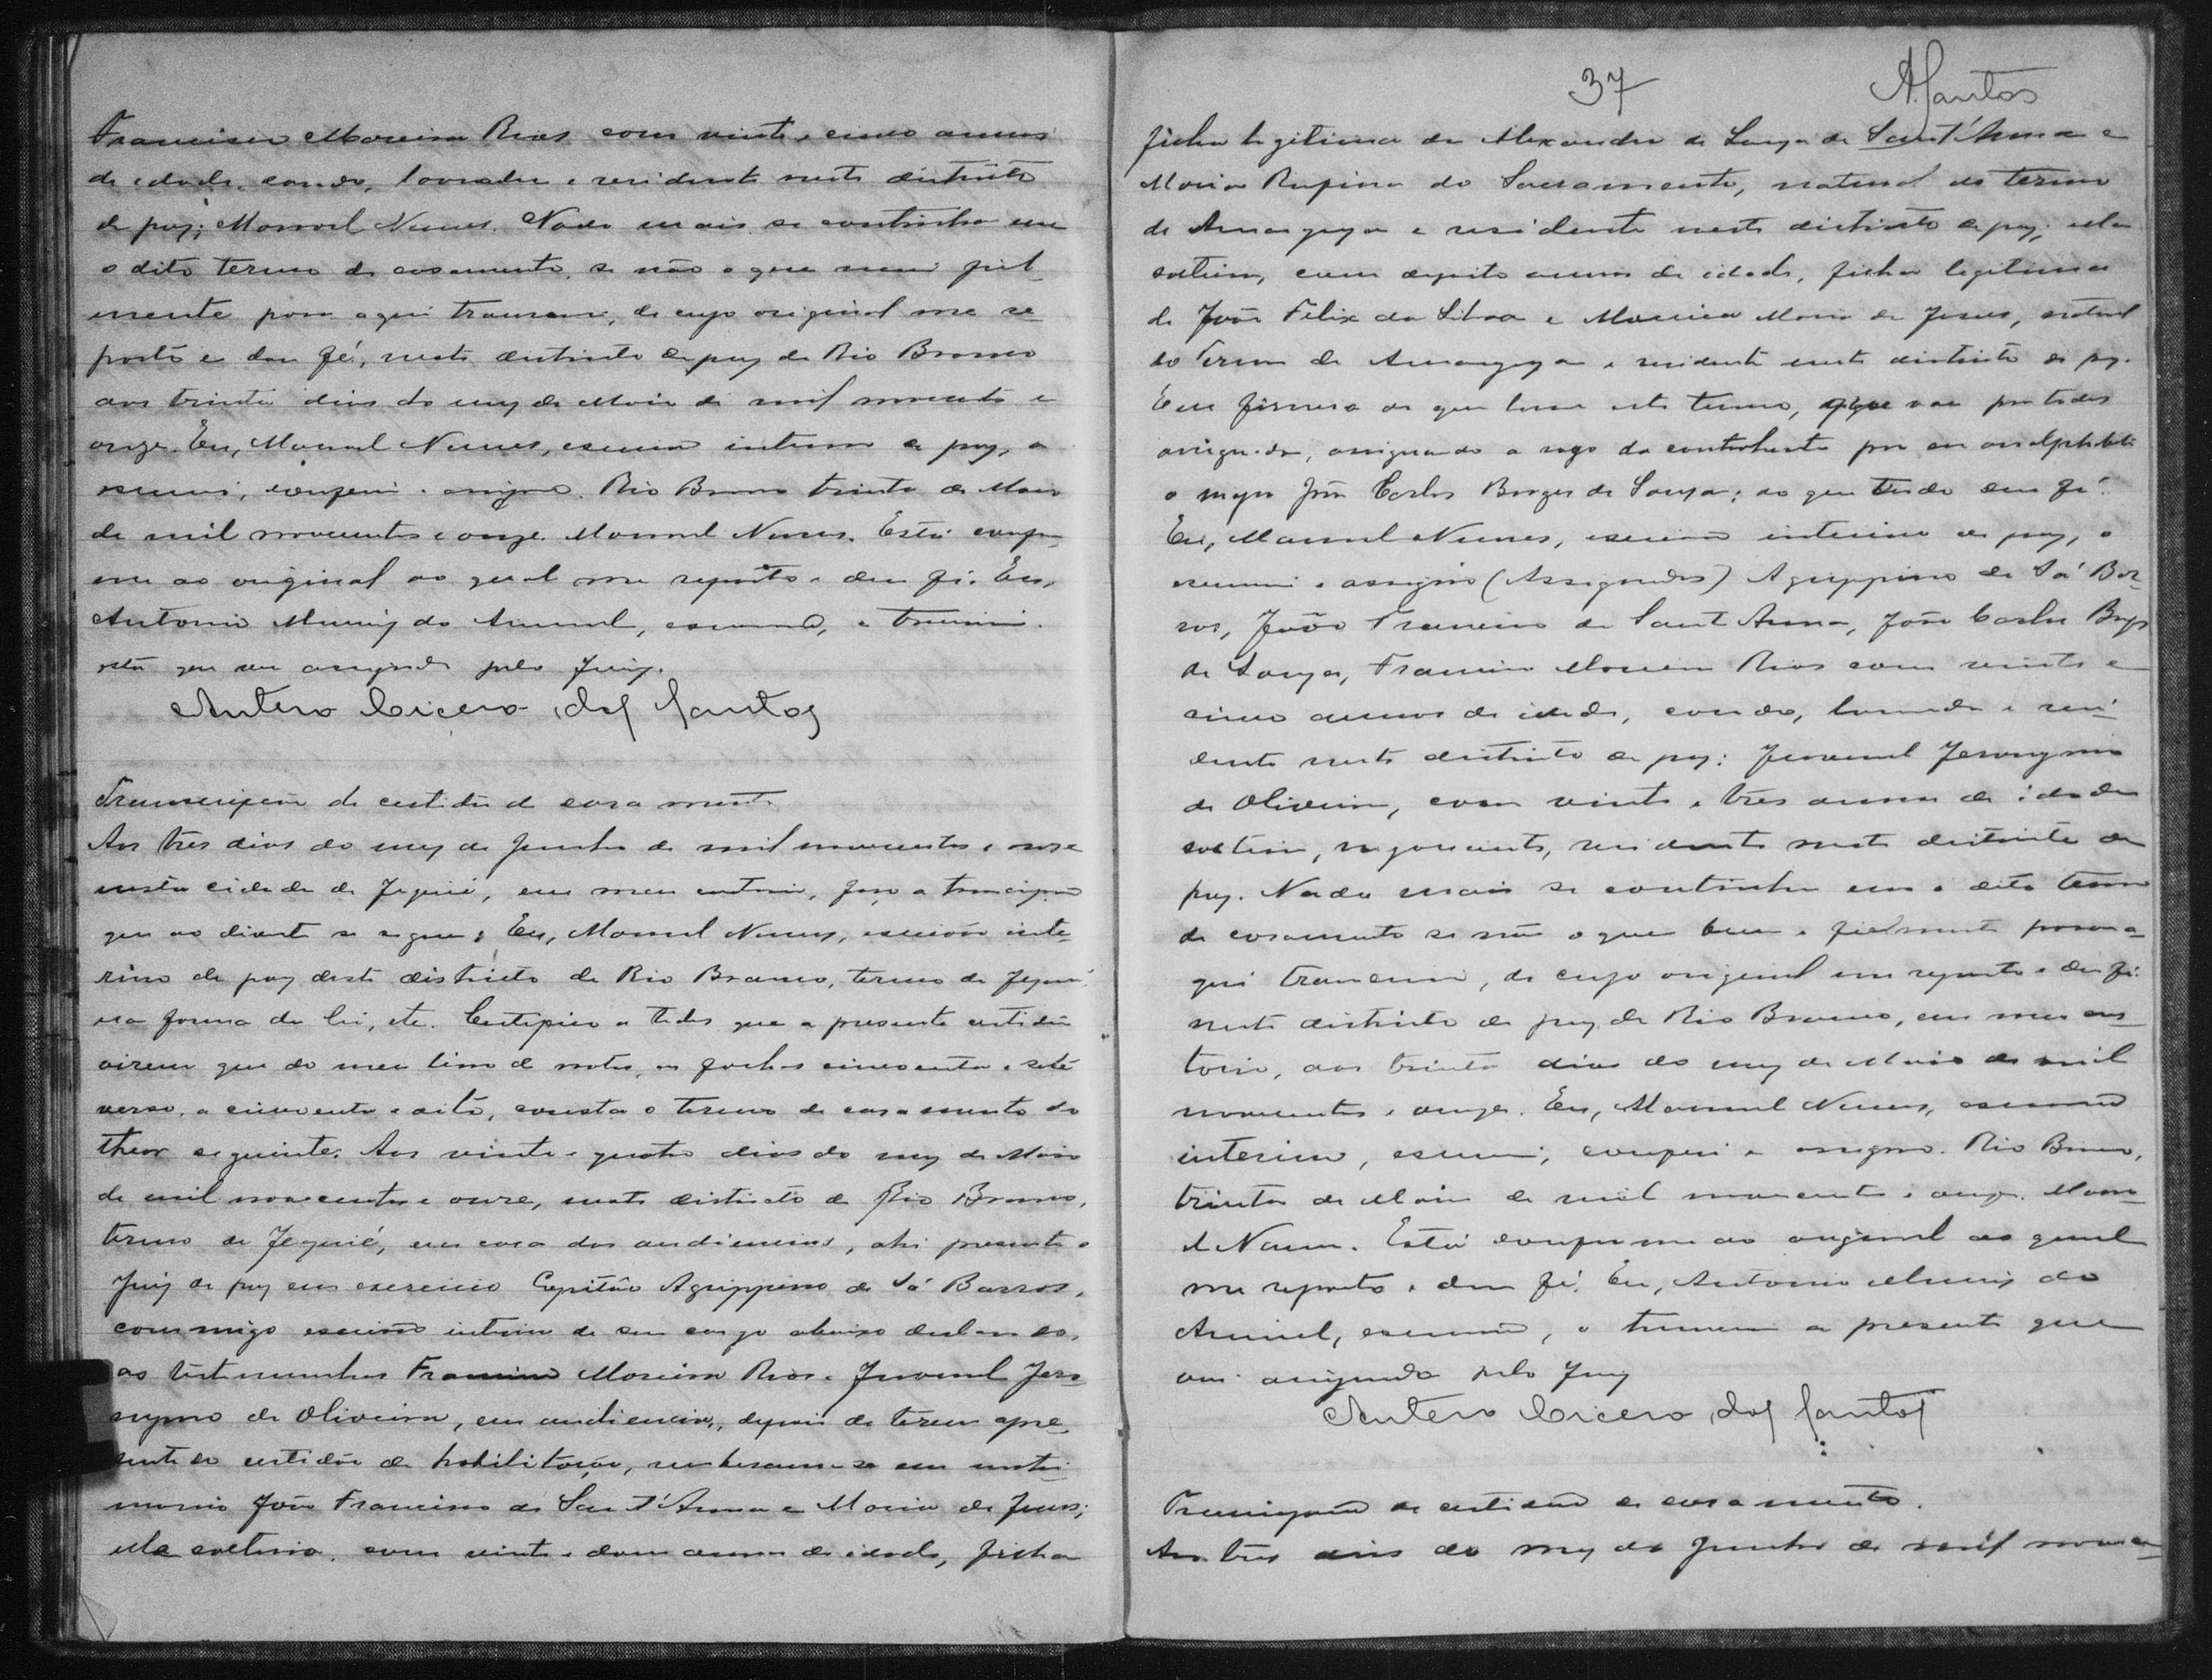 Francisco Moreira Rios com vinte e cinco annos
de edade, casado, lavrador e residente neste districto
de paz; Manoel Nunes. Nada mais se continha em
o dito termo de casamento, se não o que mui fiel
mente para aqui transcrevi, de cujo original me re
porto e dou fé, neste districto de paz de Rio Branco
aos trinta dias do mez de Maio de mil novecentos e
onze. Eu, Manoel Nunes, escrivão interino de paz, o
escrevi, conferi e assigno. Rio Branco trinta de Maio
de mil novecentos e onze. Manoel Nunes. Está confor
me ao original ao qual me reporto e dou fé. Eu,
Antonio Muniz do Amaral, escrivão, a transcrevi.
esta que vae assignada pelo Juiz.
Antero Cicero dos Santos
Transcripção de certidão de casamento
Aos tres dias do mez de Junho de mil novecentos e onze
nesta cidade de Jequié, em meu cartorio, faço a transcripção
que ao diante se segue; Eu, Manoel Nunes, escrivão inte
rino de paz deste districto de Rio Branco, termo de Jequié,
na forma da lei, etc. Certifico a todos que a presente certidão
virem que do meu livro de notas, as folhas cincoenta e sete
verso, a cincoenta e oito, consta o termo de casamento do
theor seguinte: Aos vinte e quatro dias do mez de Maio
de mil novecentos e onze, neste districto de Rio Branco,
termo de Jequié, em casa das audiencias, ahi presente o
Juiz de paz em exercicio Capitão Agrippino de Sá Barros,
commigo escrivão interino de seu cargo abaixo declarado,
as testemunhas Francisco Moreira Rios e Juvenal Jero
nymo de Oliveira, em audiencia, depois de terem apre
sentado certidão de habilitação, receberam-se em matri
monio João Francisco de Sant'Anna e Maria de Jesus;
elle solteiro, com vinte e dous annos de idade, filho
37 A. Santos
filho legitimo de Alexandre de Souza de Sant'Anna e
Maria Rufina do Sacramento, natural do termo
de Amargosa e residente neste districto de paz; ella
solteira, com dezoito annos de idade, filha legitima
de João Felix da Silva e Maria de Jesus, natural
do termo de Amargosa e residente neste districto de paz.
Em firmeza do que lavro este termo, que vae por todos
assignado, assignando a rogo da contrahente por ser analphabeta
o major João Carlos Borges de Souza; do que tudo dou fé.
Eu, Manoel Nunes, escrivão interino de paz, o
escrevi e assigno (Assignados) Agrippino de Sá Bar
ros, João Francisco de Sant Anna, João Carlos Borges
de Souza, Francisco Moreira Rios com vinte e
cinco annos de idade, casado, lavrador e resi
dente neste districto de paz: Juvenal Jeronymo
de Oliveira, com vinte e tres annos de idade
solteiro, negociante, residente neste districto de
paz. Nada mais se continha em o dito termo
de casamento se não o que bem e fielmente para a
qui transcrevi, de cujo original me reporto e dou fé.
neste districto de paz de Rio Branco, em meu car
torio, aos trinta dias do mez de Maio de mil
novecentos e onze. Eu, Manoel Nunes, escrivão
interino, escrevi, conferi e assigno. Rio Branco,
trinta de Maio de mil novecentos e onze. Mano
el Nunes. Está conforme ao original ao qual
me reporto e dou fé. Eu, Antonio Muniz do
Amaral, escrivão, o transcrevi a presente que
vai assignada pelo Juiz
Antero Cicero dos Santos
Transcripção de certidão de casamento.
Aos tres dias do mez de Junho de mil novece